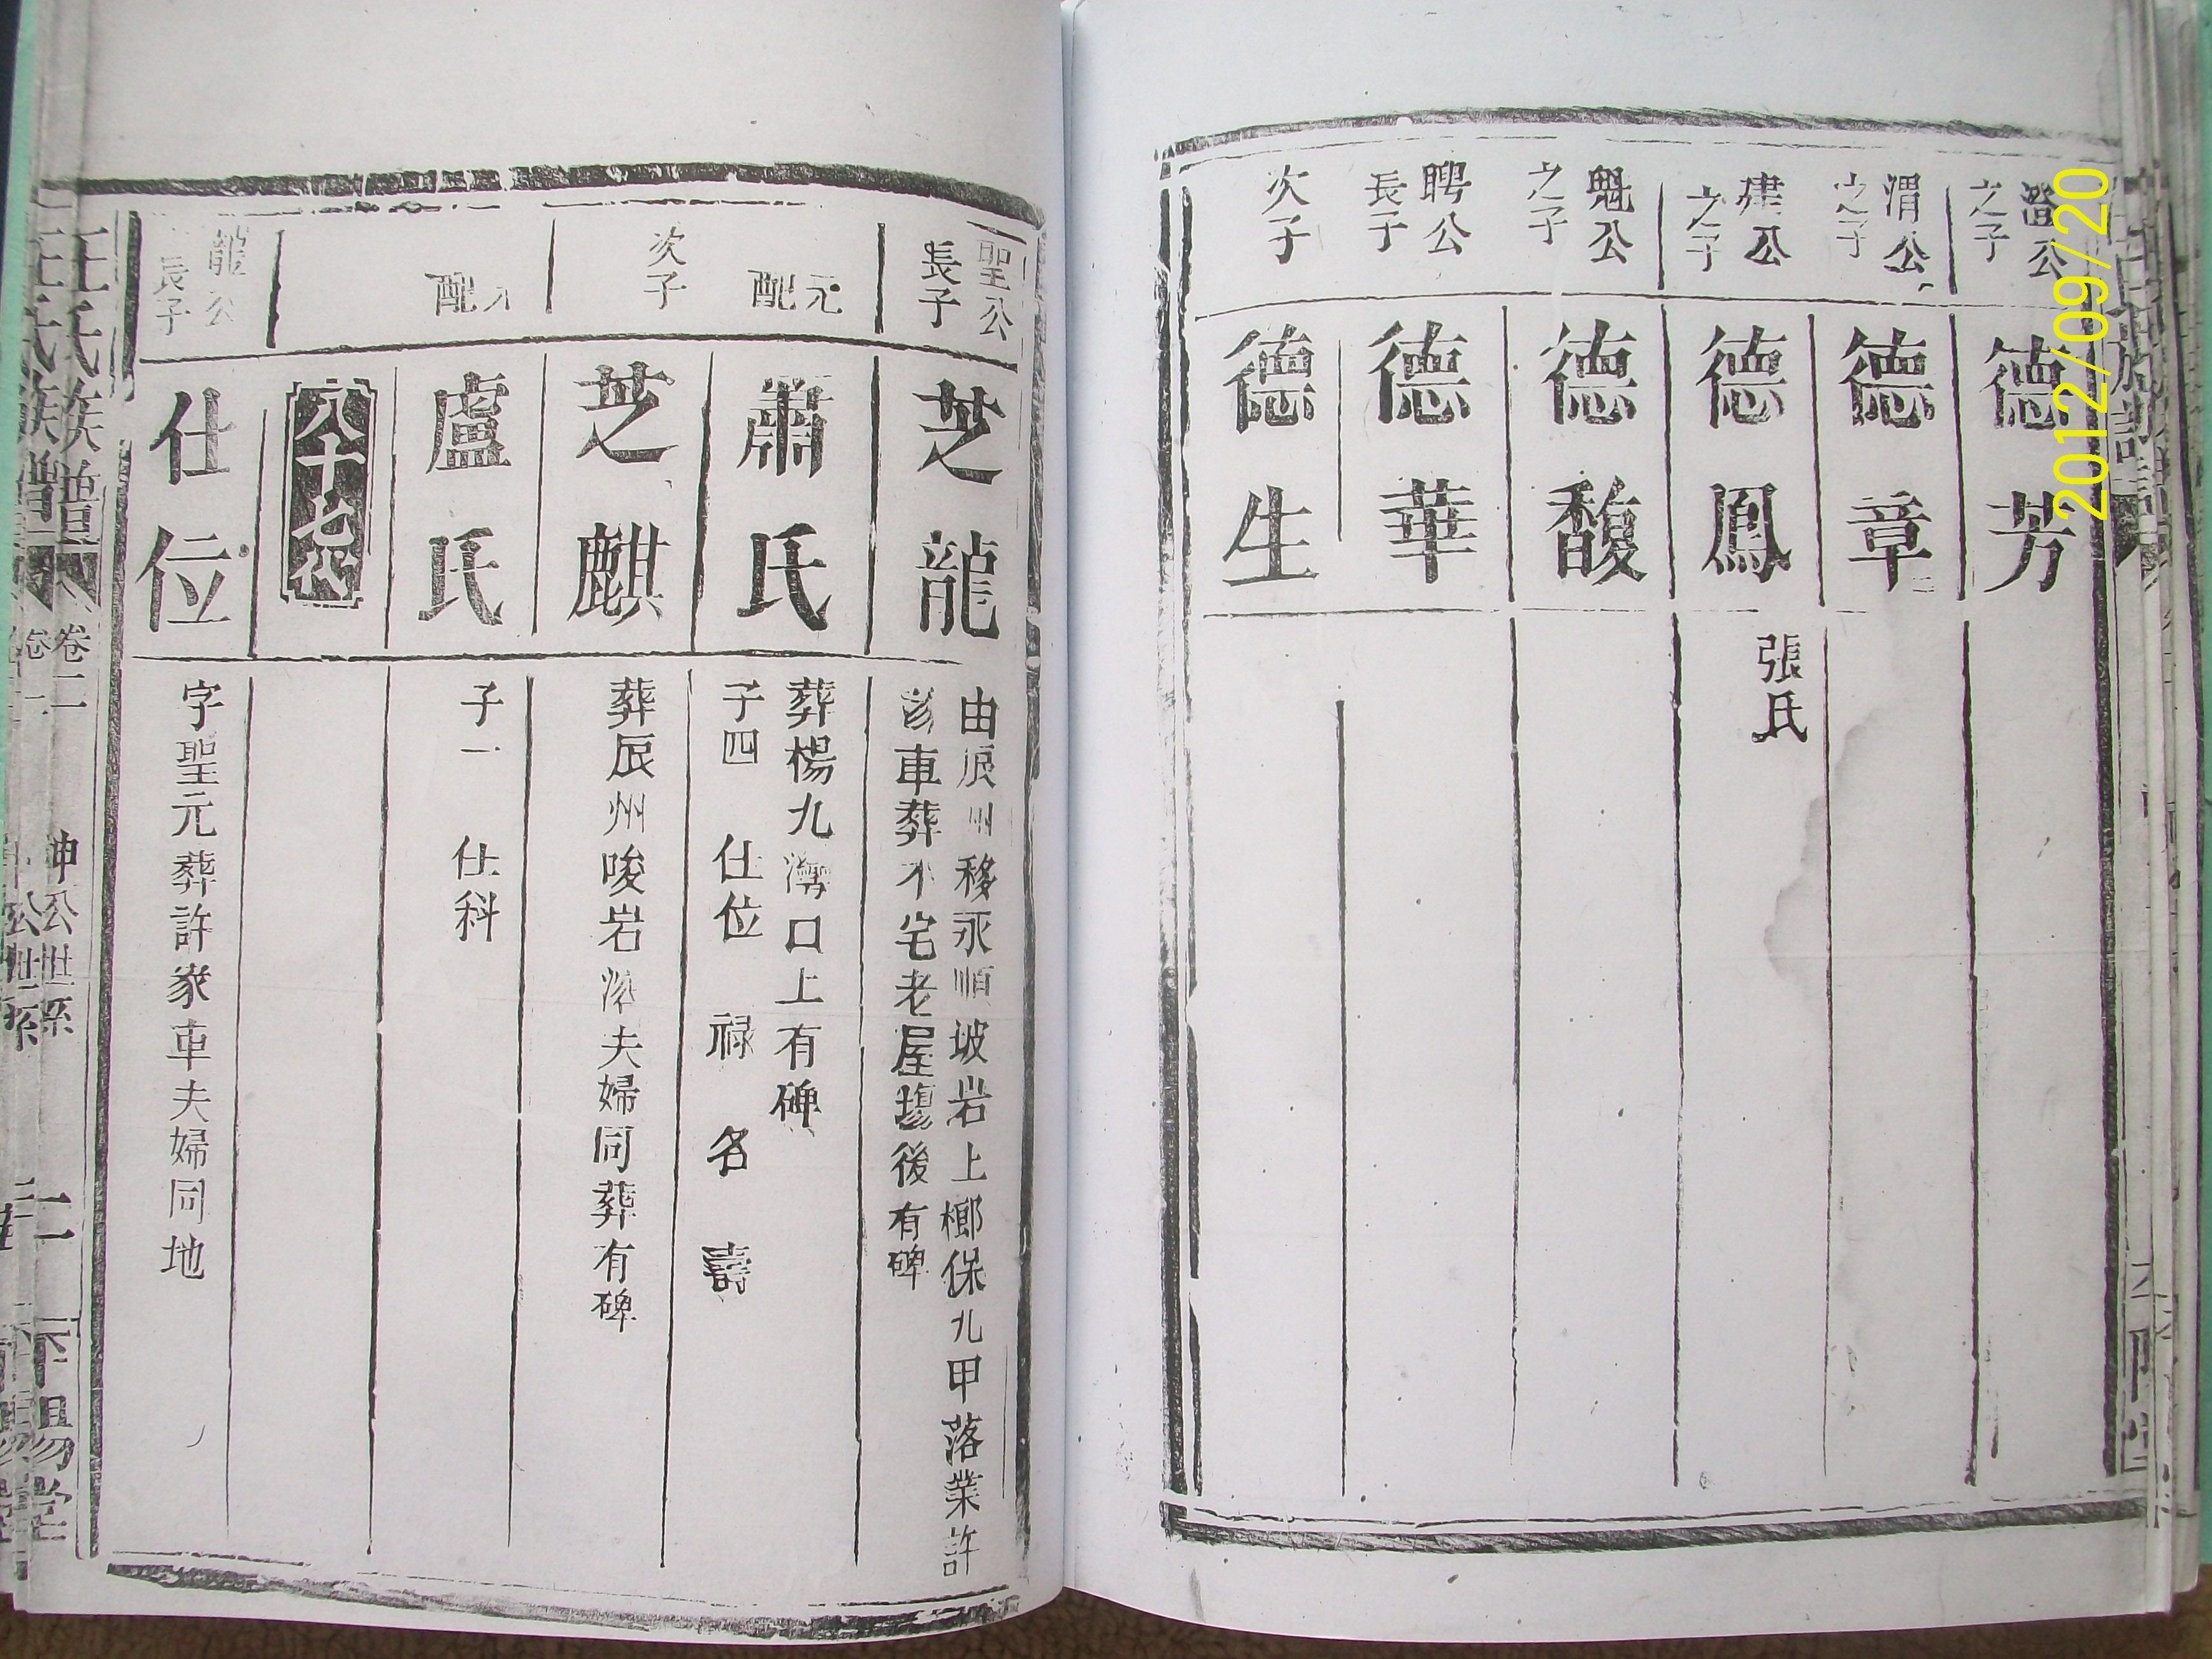 公
之子
德芳
渭公
之子
德章
建公
之子
德鳳
張氏
魁公
之子
德馥
聘公
長子
德華
次子
德生
2012/09/20
聖公
長子
芝龍
由辰州移永順坡岩上榔保九甲落業許
車葬 宅老屋塲後有碑
元配
蕭氏
葬楊九灣口上有碑
子四 仕位 禄 名 壽
次子
芝麒
葬辰州唆岩 夫婦同葬有碑
元配
盧氏
子一 仕科
八十七代
龍公
長子
仕位
字聖元葬許家車夫婦同地
王氏族譜
卷二
坤公世系
二